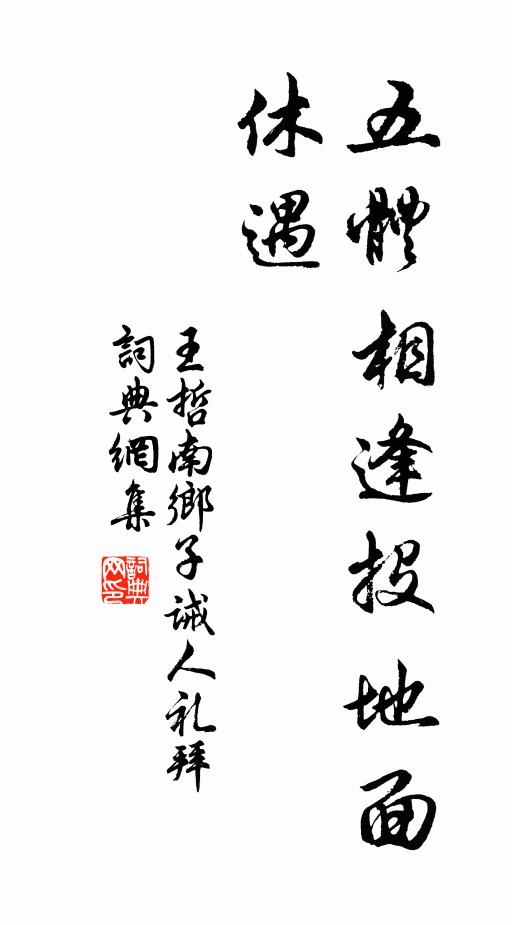 五體相逢投地面
休遇
王哲南鄉子誡人礼拜
詞典網集
詞典
网印